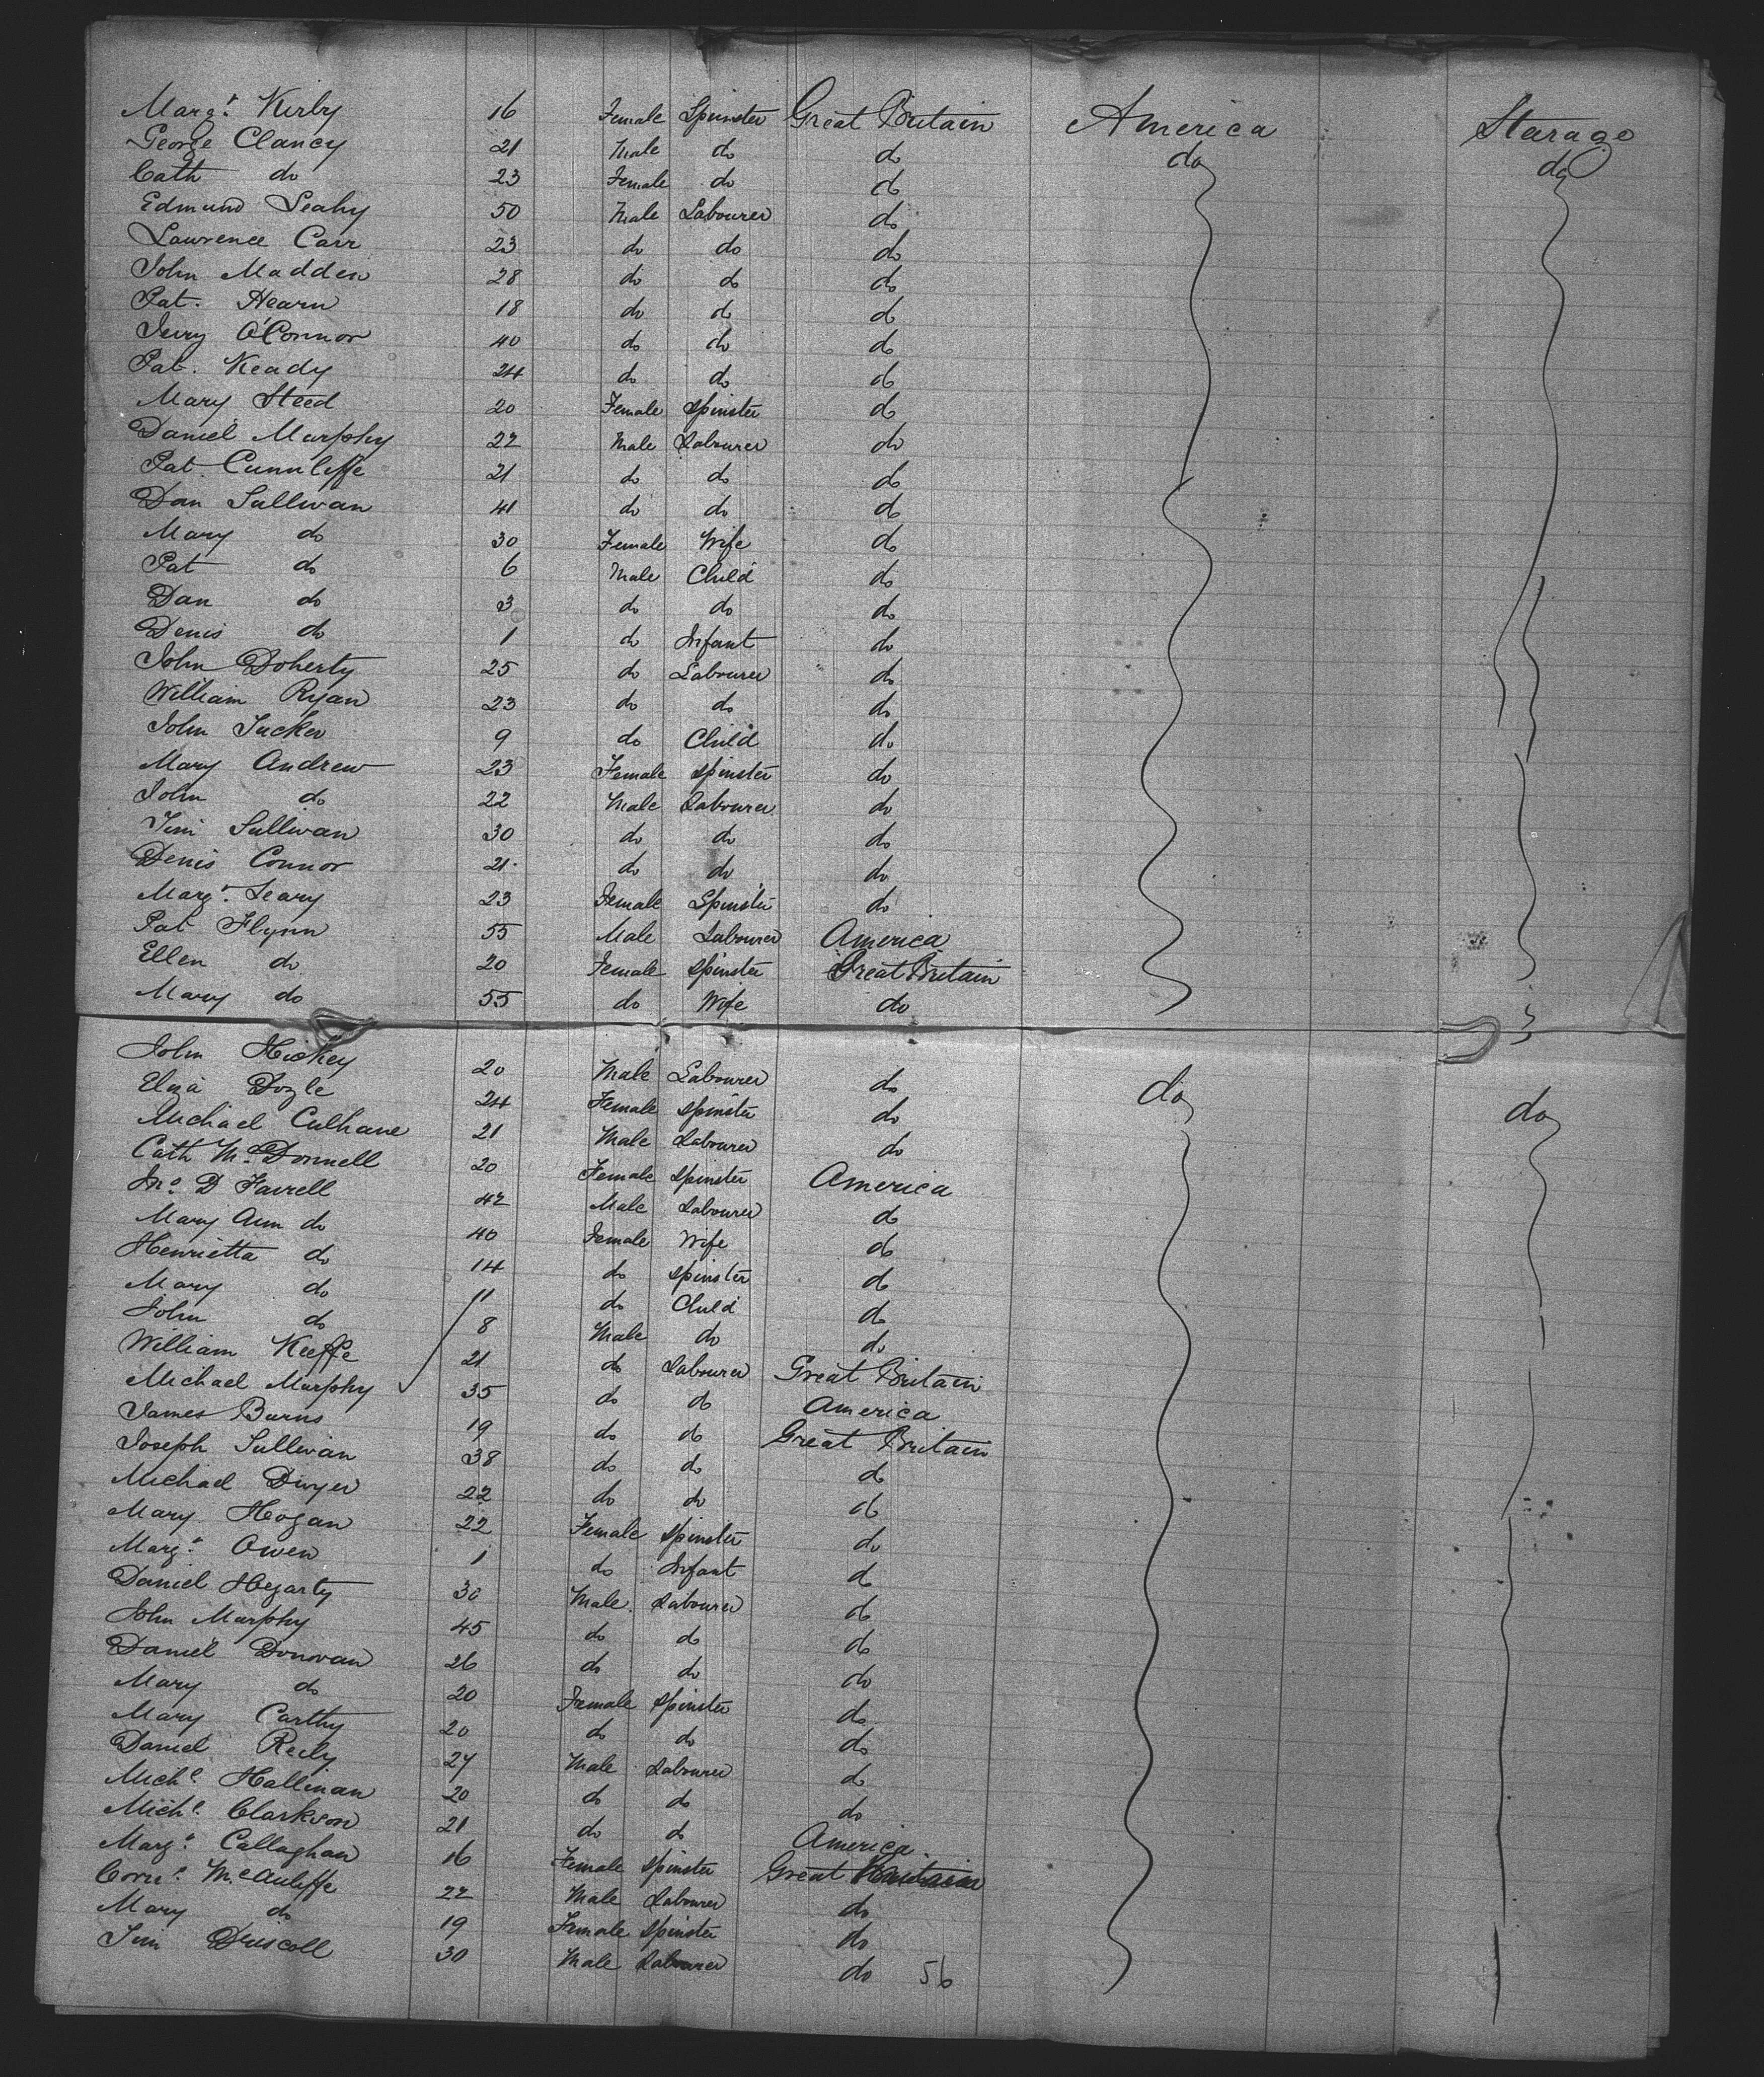 Margt. Kirby 16 Female Spinster Great Britain America Starage
George Clancy 21 Male do do do do
Cath do 23 Female do do
Edmund Leahy 50 Male Labourer do
Lawrence Carr 23 do do do
John Madden 28 do do do
Pat. Hearn 18 do do do
Jerry O'Connor 40 do do do
Pat. Keady 24 do do do
Mary Steed 20 Female Spinster do
Daniel Murphy 22 Male Labourer do
Pat Cunnliffe 21 do do do
Dan Sullivan 41 do do do
Mary do 30 Female Wife do
Pat do 6 Male Child do
Dan do 3 do do do
Denis do 1 do Infant do
John Doherty 25 do Labourer do
William Ryan 23 do do do
John Tucker 9 do Child do
Mary Andrew 23 Female Spinster do
John do 22 Male Labourer do
Tim Sullivan 30 do do do
Denis Connor 21 do do do
Margt. Leary 23 Female Spinster do
Pat Flynn 55 Male Labourer America
Ellen do 20 Female Spinster Great Britain
Mary do 55 do Wife do
John Hickey 20 Male Labourer do do do
Eliza Dogle 24 Female Spinster do
Michael Culhane 21 Male Labourer do
Cath McDonnell 20 Female Spinster America
Jno. D Farrell 42 Male Labourer do
Mary Ann do 40 Female Wife do
Henrietta do 14 do Spinster do
Mary do 11 do Child do
John do 8 Male do do
William Keeffe 21 do Labourer Great Britain
Michael Murphy 35 do do America
James Burns 19 do do Great Britain
Joseph Sullivan 38 do do do
Michael Dwyer 22 do do do
Mary Hogan 22 Female Spinster do
Margt. Owen 1 do Infant do
Daniel Hegarty 30 Male Labourer do
John Murphy 45 do do do
Daniel Donovan 26 do do do
Mary do 20 Female Spinster do
Mary Carthy 20 do do do
Daniel Reily 24 Male Labourer do
Michl. Hallinan 20 do do do
Michl. Clarkson 21 do do America.
Margt. Callaghan 16 Female Spinster Great Britain
Cornl. McAuliffe 22 Male Labourer do
Mary do 19 Female Spinster do
Tim Driscoll 30 Male Labourer do 56